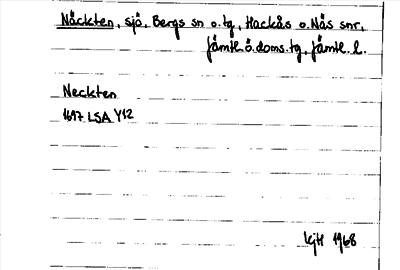 Näckten, sjö, Bergs sn o. tg, Hackås o. Nås snr,
Jämtl. ö. doms. tg, Jämtl. l.
Neckten
1697 LSA Y12
1968